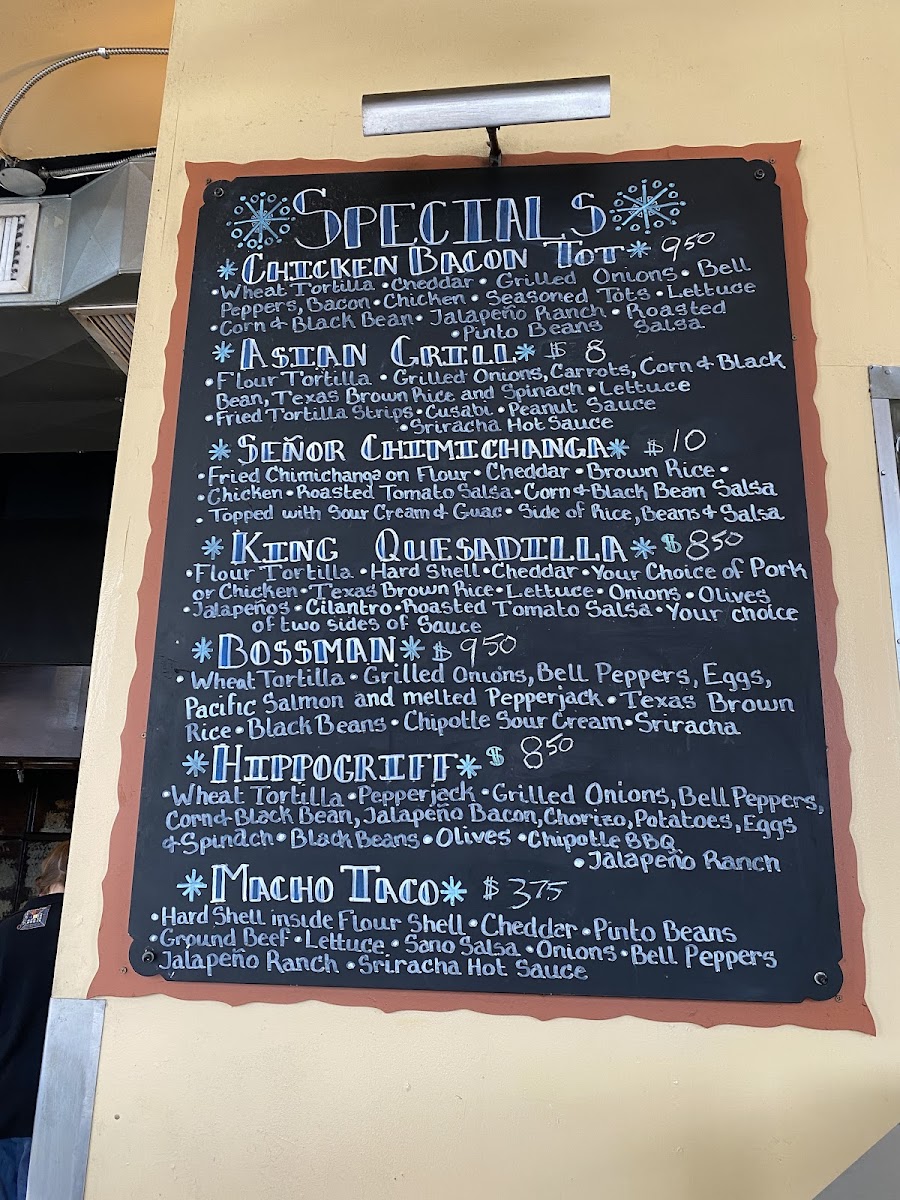 *SPECIALS*
*CHICKEN BACON TOT* 9.50
•Wheat Tortilla •Cheddar • Grilled Onions • Bell
Peppers, Bacon • Chicken • Seasoned Tots • Lettuce
•Corn & Black Bean • Jalapeño Ranch • Roasted
•Pinto Beans Salsa
*ASIAN GRILL* $ 8
•Flour Tortilla •Grilled Onions, Carrots, Corn & Black
Bean, Texas Brown Rice and Spinach • Lettuce
•Fried Tortilla Strips •Cusabi • Peanut Sauce
•Sriracha Hot Sauce
*SEÑOR CHIMICHANGA* $10
•Fried Chimichanga on Flour • Cheddar •Brown Rice •
•Chicken •Roasted Tomato Salsa • Corn & Black Bean Salsa
• Topped with Sour Cream & Guac • Side of Rice, Beans & Salsa
*KING QUESADILLA* $8.50
•Flour Tortilla •Hard Shell •Cheddar •Your Choice of Pork
or Chicken •Texas Brown Rice •Lettuce •Onions •Olives
•Jalapeños •Cilantro •Roasted Tomato Salsa •Your choice
of two sides of Sauce
*BOSSMAN* $ 9.50
• Wheat Tortilla •Grilled Onions, Bell Peppers, Eggs,
Pacific Salmon and melted Pepperjack • Texas Brown
Rice • Black Beans • Chipotle Sour Cream • Sriracha
*HIPPOGRIFF* $ 8.50
•Wheat Tortilla •Pepperjack •Grilled Onions, Bell Peppers,
Corn & Black Bean, Jalapeño Bacon, Chorizo, Potatoes, Eggs
& Spinach • Black Beans • Olives •Chipotle BBQ
•Jalapeño Ranch
*MACHO TACO* $ 3.75
•Hard Shell inside Flour Shell •Cheddar •Pinto Beans
•Ground Beef •Lettuce • Sano Salsa •Onions •Bell Peppers
•Jalapeño Ranch •Sriracha Hot Sauce